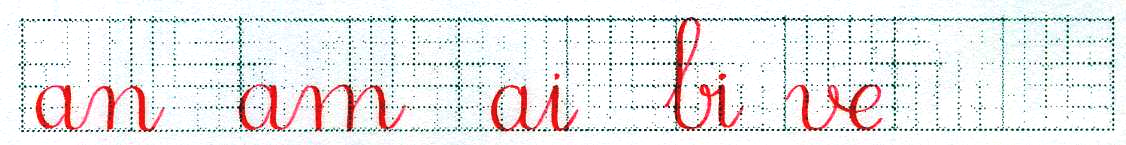 an am ai bi ve